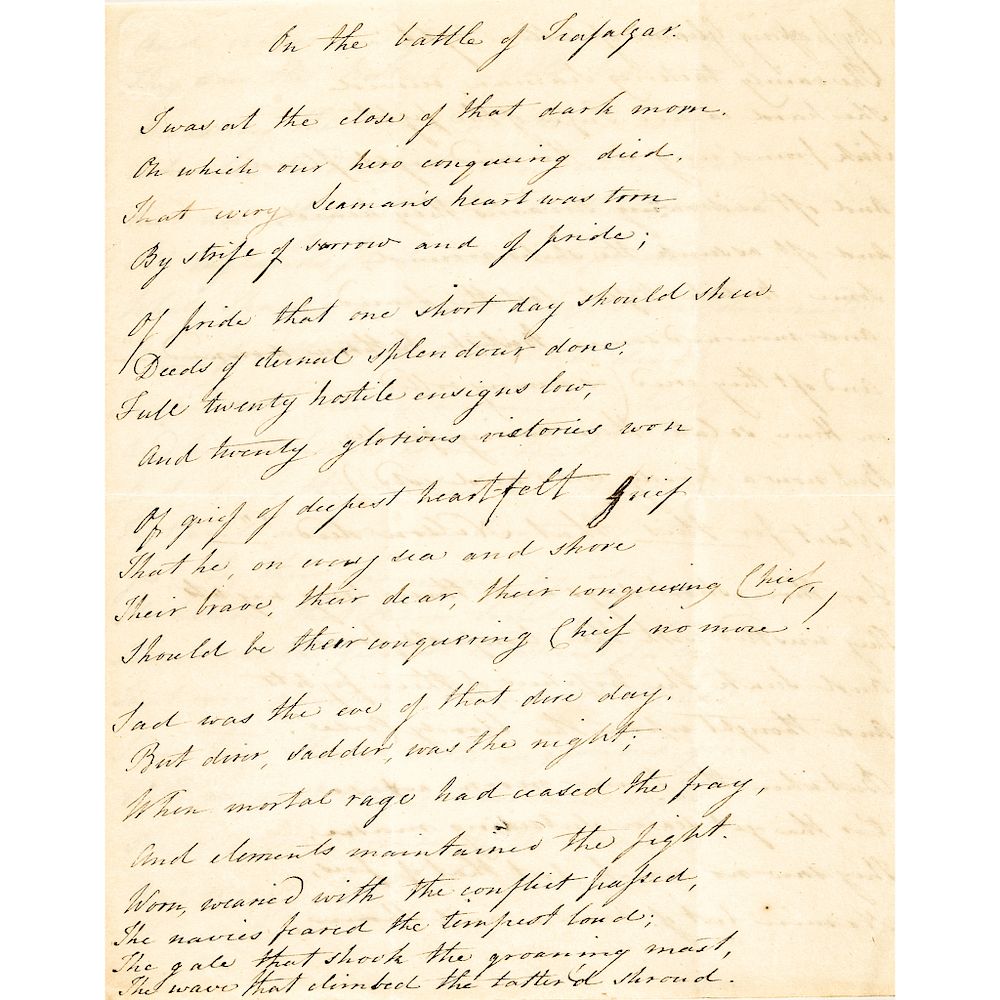 On the battle of Trafalgar.
Twas at the close of that dark morn.
On which our hero conquering died,
That every Seaman's heart was torn
By strife of sorrow and of pride;
Of pride that one short day should shew
Deeds of eternal splendour done,
Full twenty hostile ensigns low,
And twenty glorious victories won
Of grief of deepest heartfelt grief
That he, on every sea and shore
Their brave, their dear, their conquering Chief,
Should be their conquering Chief no more!
Sad was the eve of that dire day.
But direr, sadder, was the night;
When mortal rage had ceased the fray,
And elements maintained the fight.
Worn, wearied with the conflict passed,
The navies feared the tempest loud;
The gale that shook the groaning mast,
The wave that climbed the tatter'd shroud.